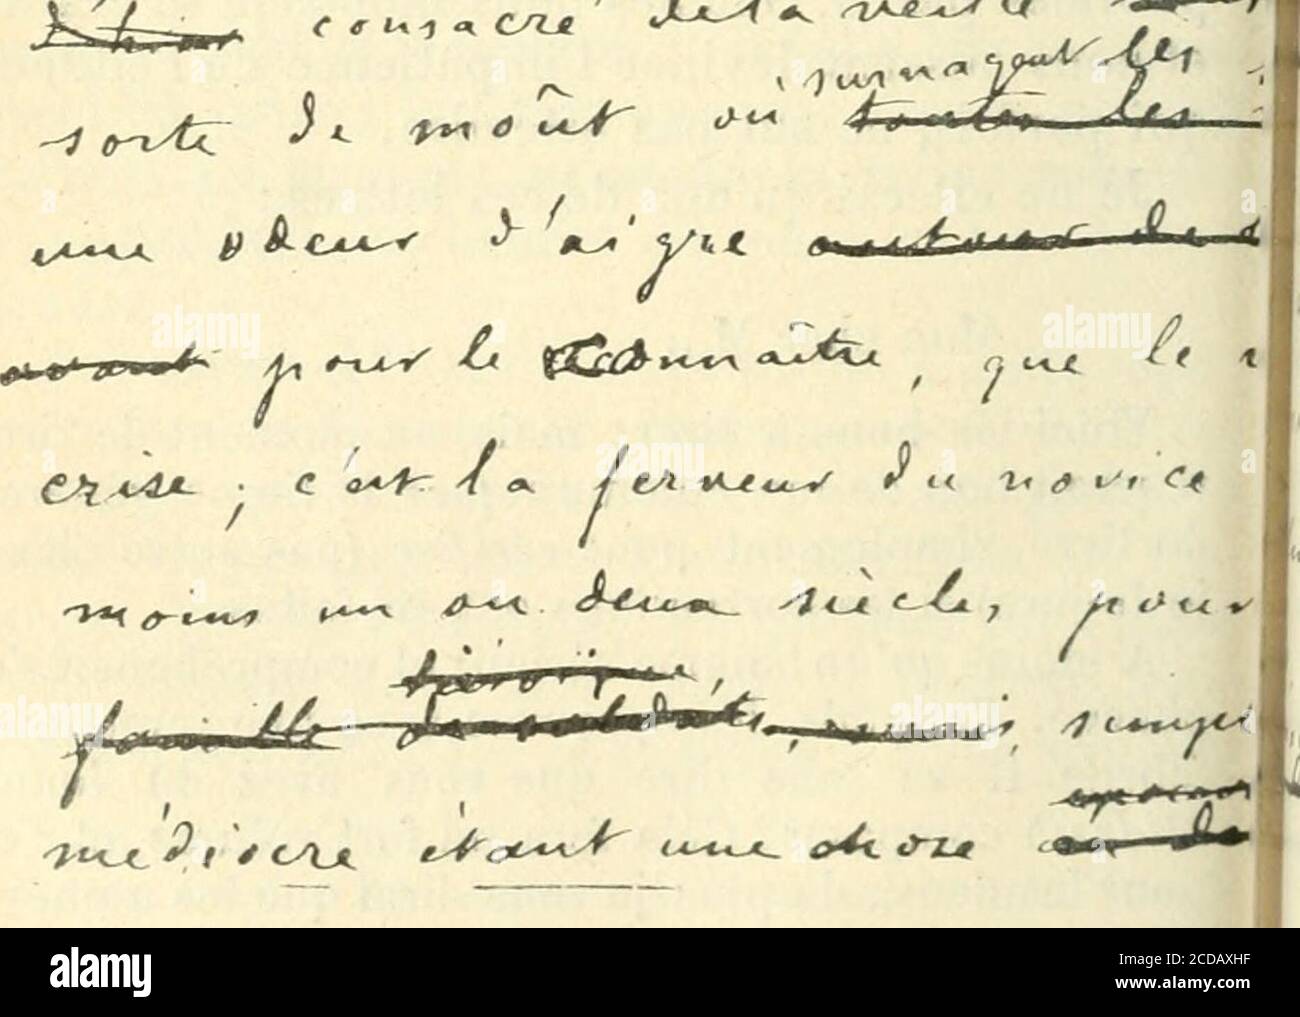 consacré de la veille
surnageant les
sorte de moût où toutes les
une odeur d'aigre autour de
avant pour le connaître, que le
crise ; c'est la ferveur du novice
moins un ou deux siècles, pour
héroïque,
famille de soldats, mais, simpl
médiocre étant une chose
alamy
Image ID: 2CDAXHF
www.alamy.com